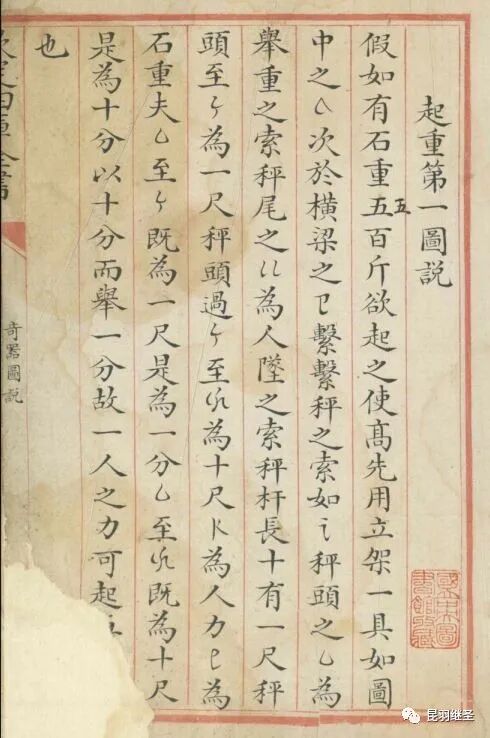 起重第一圖説
假如有石重五百斤欲起之使髙先用立架一具如圖
五
中之 次於橫梁之 繫繫秤之索如 秤頭之乚為
舉重之索秤尾之 為人墜之索秤杆長十有一尺秤
頭至ケ為一尺秤頭過ケ至 為十尺 為人力 為
石重夫乚至ケ既為一尺是為一分乚至 既為十尺
是為十分以十分而舉一分故一人之力可起
也
四庫全書
奇器圖説
昆羽继圣